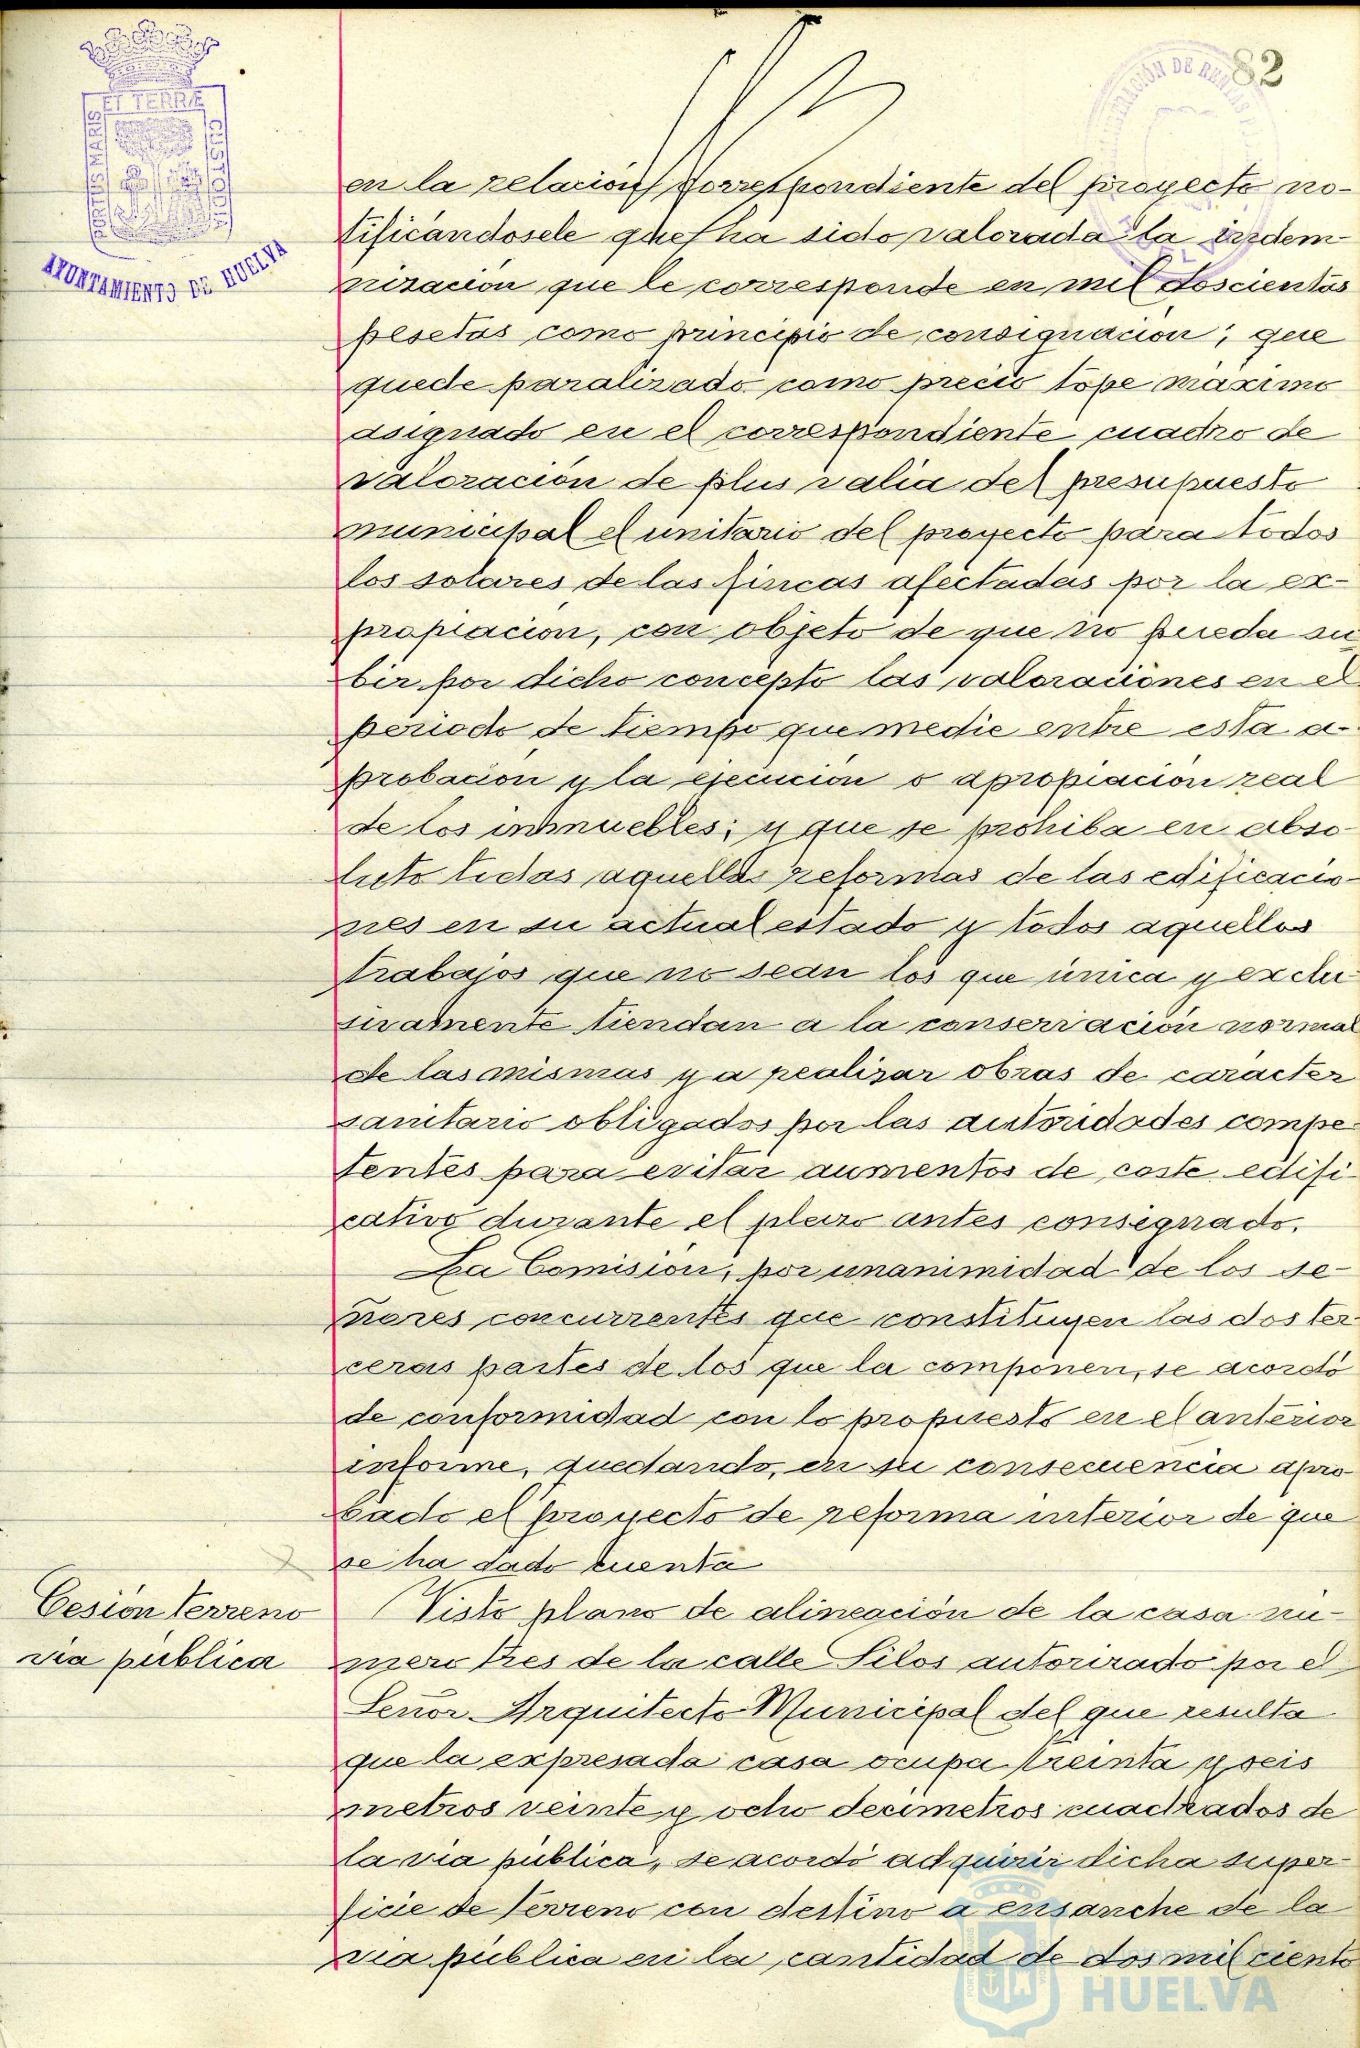 82
PORTUS MARIS
ET TERRÆ
CUSTODIA
AYUNTAMIENTO DE HUELVA
en la relación correspondiente del proyecto no-
tificándosele que ha sido valorada la indem-
nización que le corresponde en mil doscientas
pesetas como principio de consignación; que
quede paralizado como precio tope máximo
asignado en el correspondiente cuadro de
valoración de plus valia del presupuesto
municipal el unitario del proyecto para todos
los solares de las fincas afectadas por la ex-
propiación, con objeto de que no pueda su
bir por dicho concepto las valoraciones en el
período de tiempo que medie entre esta a-
probación y la ejecución o apropiación real
de los inmuebles; y que se prohiba en abso-
luto todas aquellas reformas de las edificacio-
nes en su actual estado y todos aquellos
trabajos que no sean los que única y exclu
sivamente tiendan a la conservación normal
de las mismas y a realizar obras de carácter
sanitario obligados por las autoridades compe-
tentes para evitar aumentos de coste edifi-
cativo durante el plazo antes consignado.
La Comisión, por unanimidad de los se-
ñores concurrentes que constituyen las dos ter-
ceras partes de los que la componen, se acordó
de conformidad con lo propuesto en el anterior
informe, quedando, en su consecuencia apro-
bado el proyecto de reforma interior de que
se ha dado cuenta
Cesión terreno
via pública
Visto plano de alineación de la casa nú-
mero tres de la calle Silos autorizado por el
Señor Arquitecto Municipal del que resulta
que la expresada casa ocupa treinta y seis
metros veinte y ocho decímetros cuadrados de
la via pública, se acordó adquirir dicha super-
ficie de terreno con destino a ensanche de la
via pública en la cantidad de dos mil ciento
HUELVA